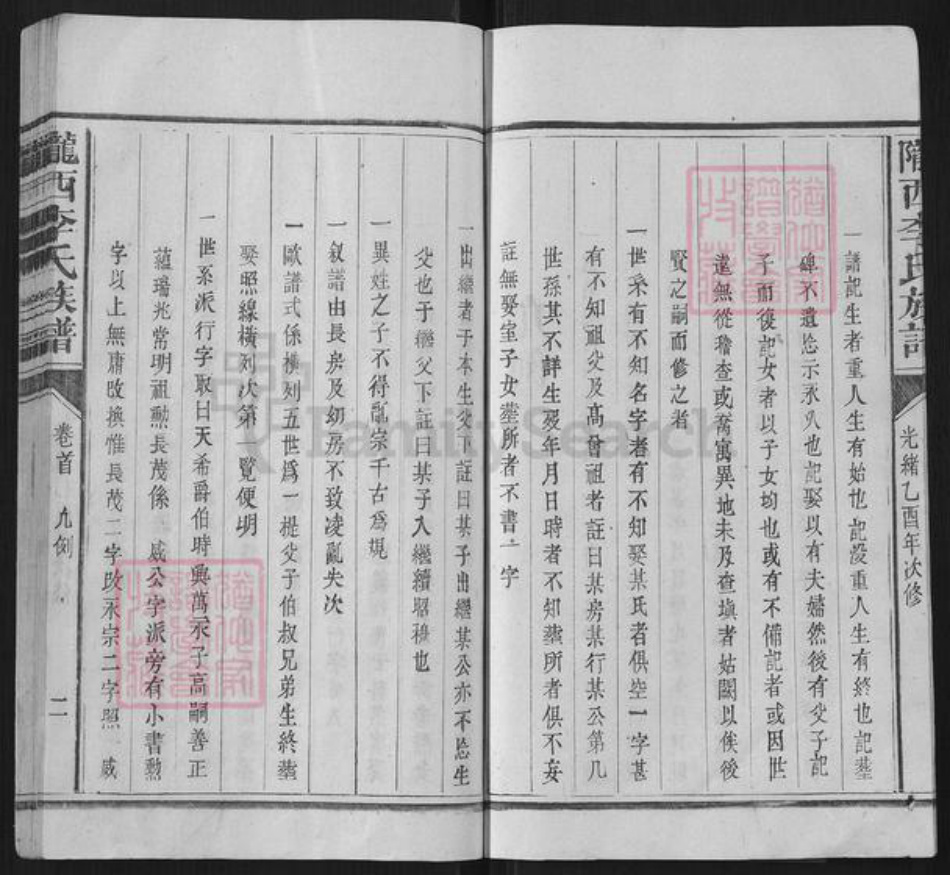 隴西李氏族譜
光緒乙酉年次修
一譜記生者重人生有始也記歿重人生有終也記塟
碑不遺忘示永久也記娶以有夫婦然後有父子記
子而復記女者以子女均也或有不備記者或因世
遠無從稽查或喬寓異地未及查塡者姑闕以俟後
賢之嗣而修之者
一世系有不知名字者有不知娶某氏者俱空一字甚
有不知祖父及高曾祖者註曰某房某行某公第几
世孫其不詳生歿年月日時者不知塟所者俱不妄
註無娶室子女塟所者不書一字
一出繼者于本生父下註曰某子出繼某公亦不忘生
父也于繼父下註曰某子入繼續昭穆也
一異姓之子不得亂宗千古為規
一叙譜由長房及幼房不致凌亂失次
一歐譜式係橫列五世為一提父子伯叔兄弟生終塟
娶照線橫列次第一覽便明
一世系派行字取曰天希爵伯時興萬永子高嗣善正
蘊瑞兆常明祖勲長茂係 威公字派旁有小書勲
字以上無庸改換惟長茂二字改永宗二字照 威
隴西李氏族譜
卷首 凡例 二
FamilySearch